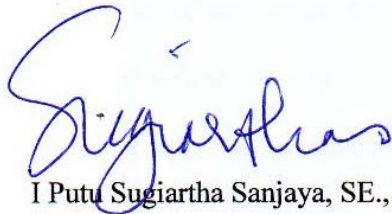 Sugiartha
I Putu Sugiartha Sanjaya, SE.,